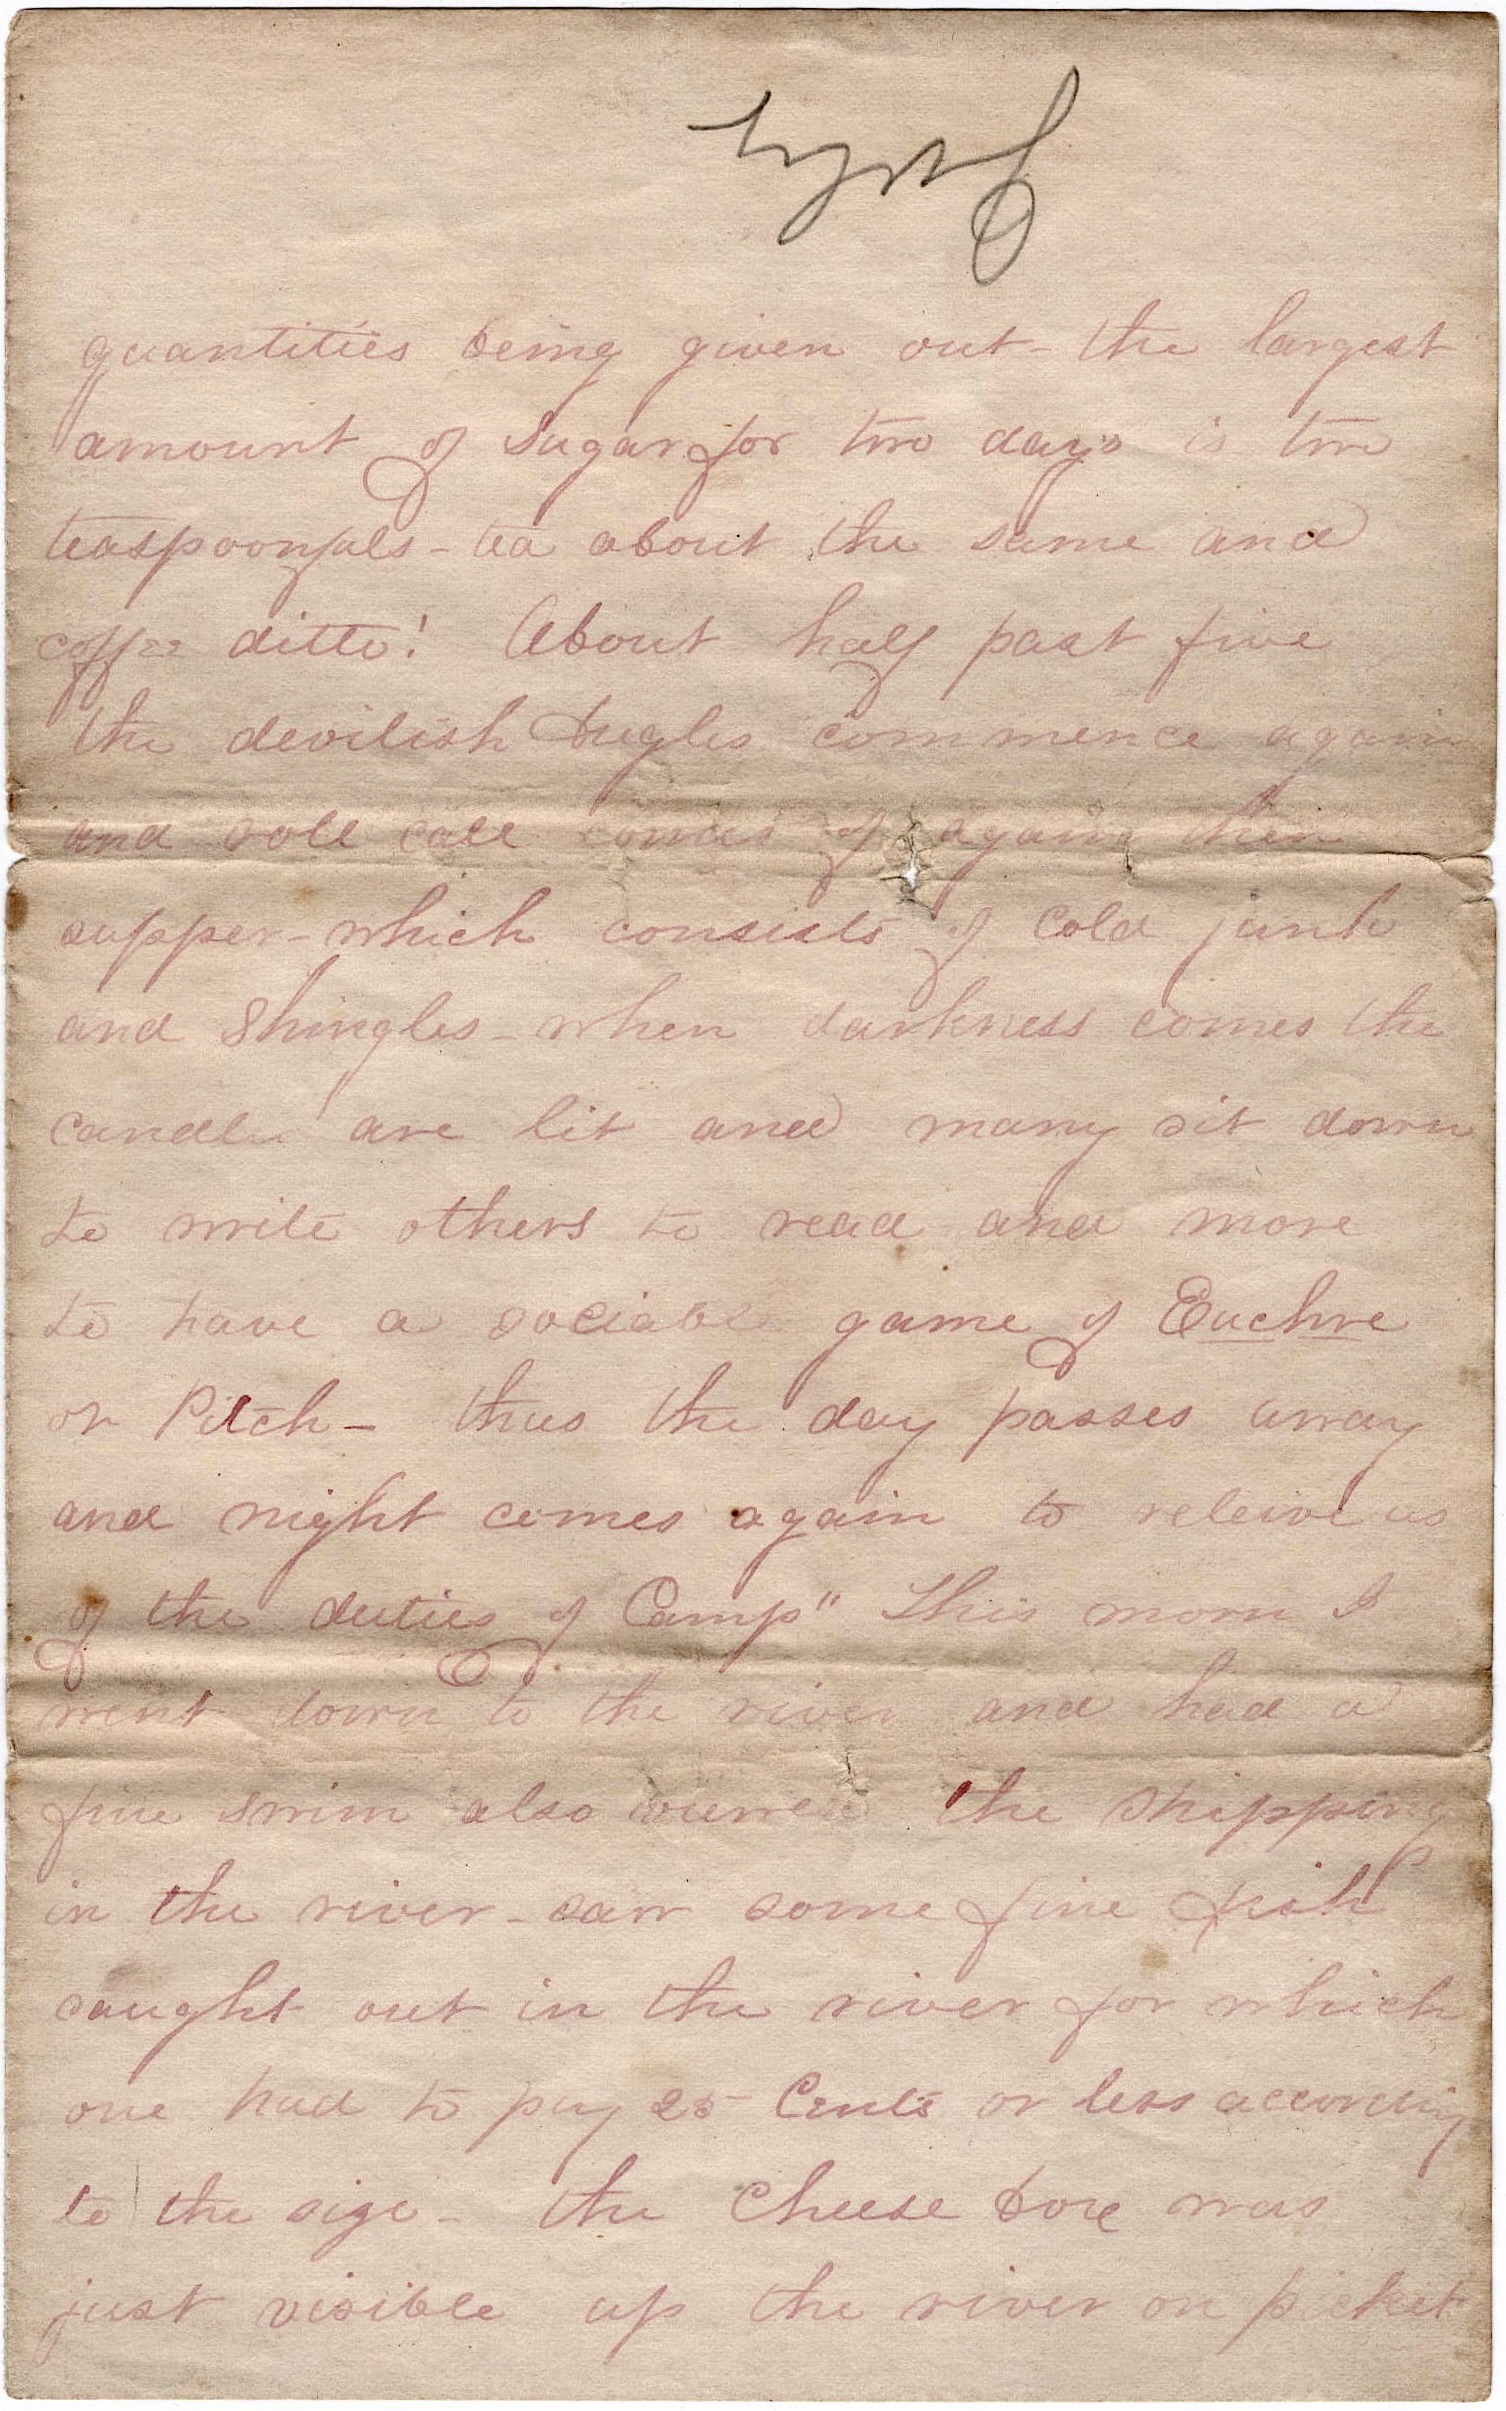 quantities being given out - the largest
amount of Sugar for two day's is two
teaspoonfuls - tea about the same and
coffee ditto! About half past five
the devilish bugles commence again
and roll call comes of again then
supper - which consists of cold junk
and Shingles - when darkness comes the
candles are lit and many sit down
to write others to read and more
to have a sociable game of Euchre
or Pitch - thus the day passes away
and night comes again to releive us
of the duties of Camp" This morn I
went down to the river and had a
fine swim also viewed the shipping
in the river - saw some fine fish
caught out in the river for which
one had to pay 25 Cents or less according
to the size - the Cheese box was
just visible up the river on picket